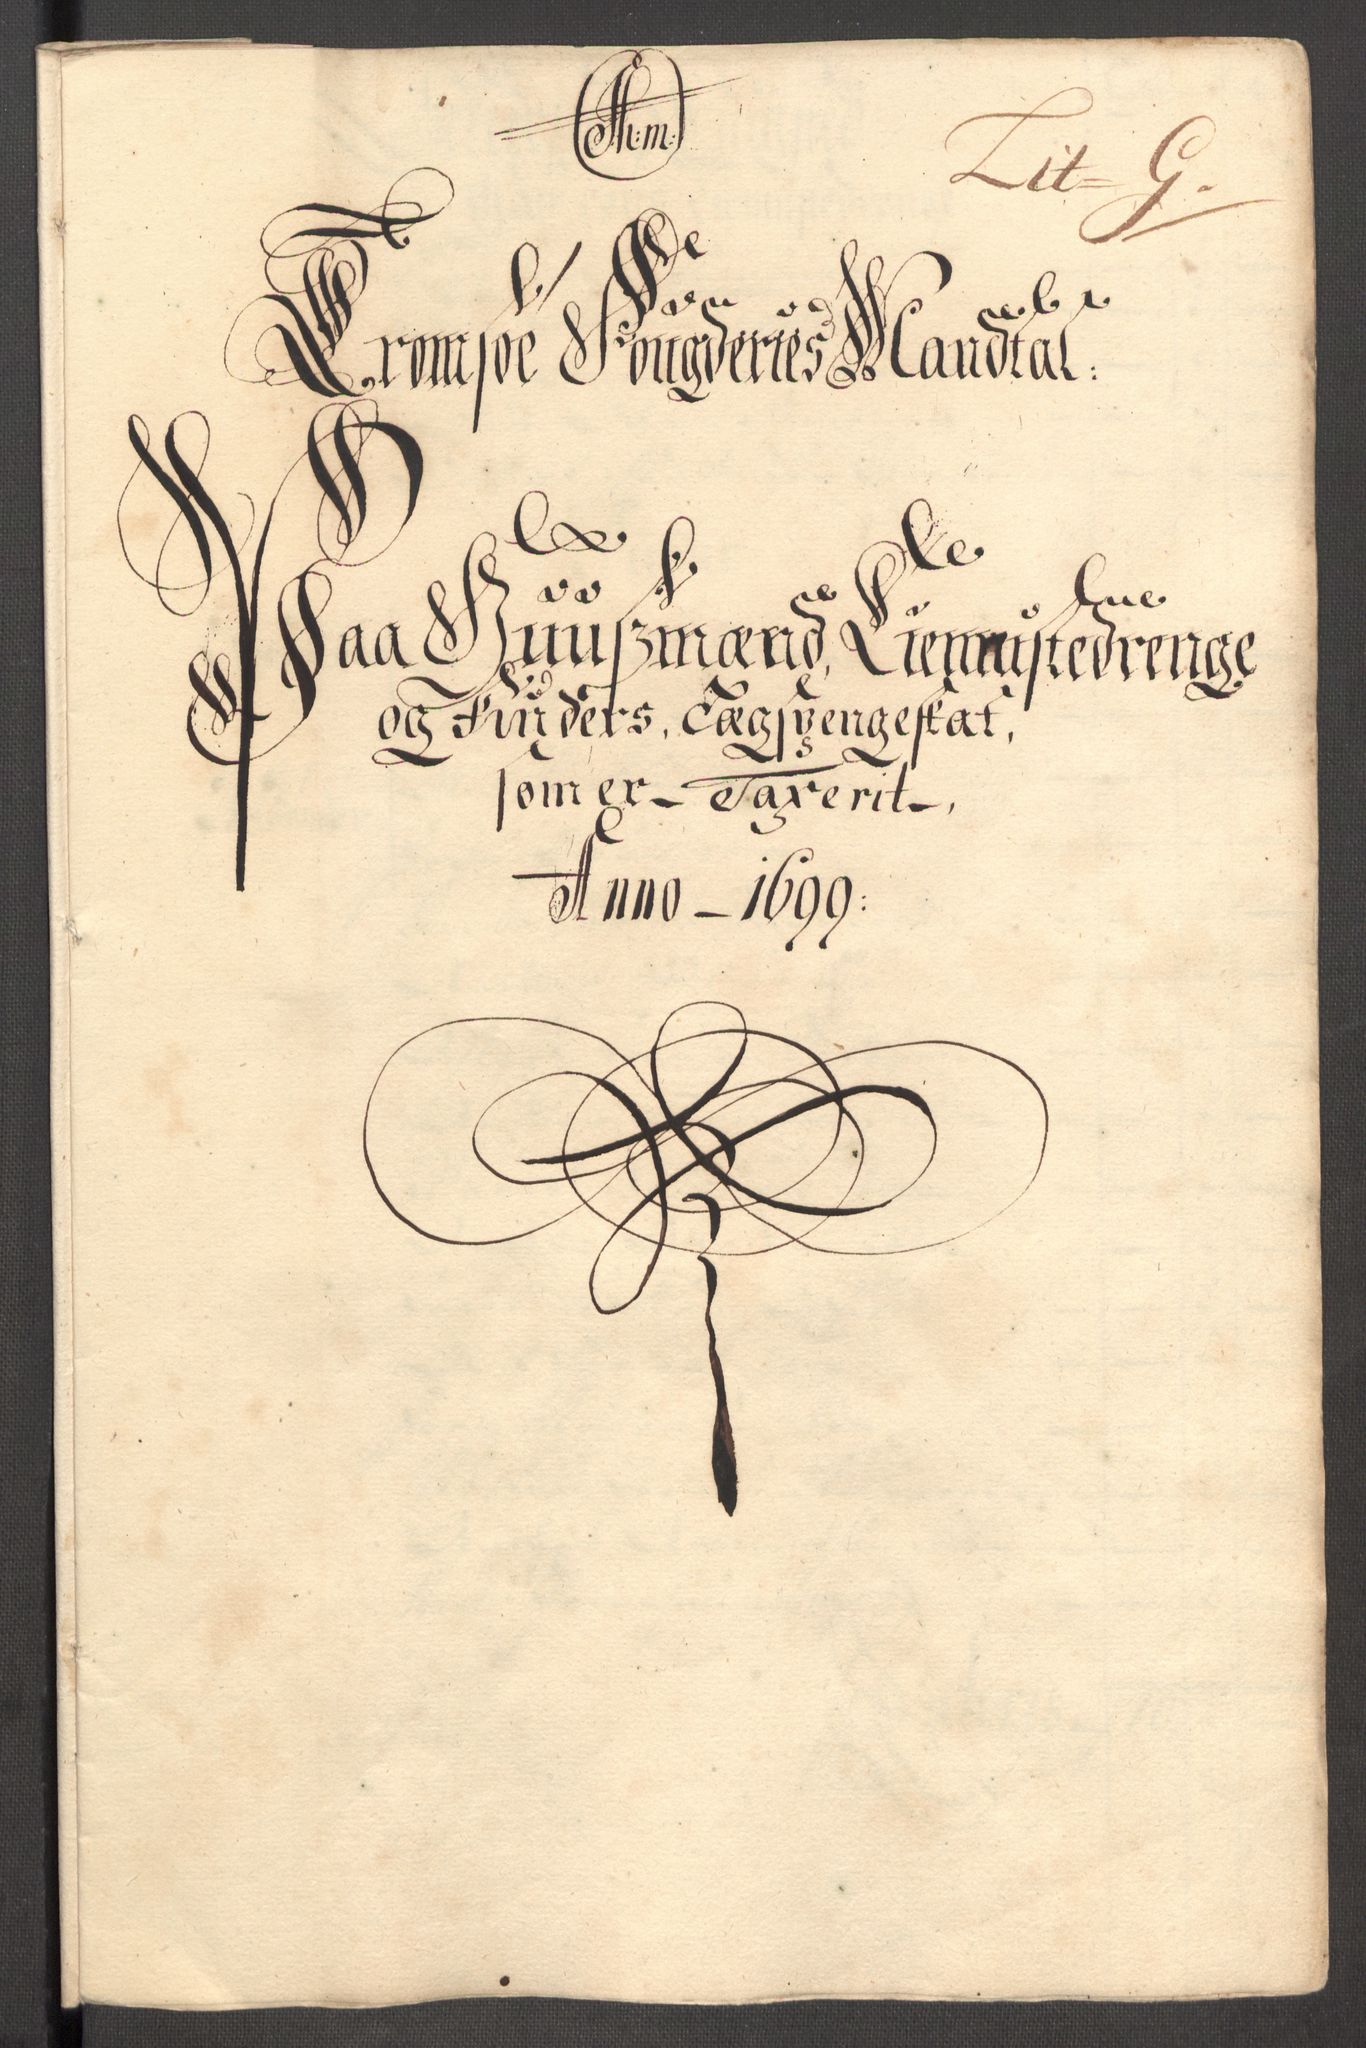 Lit= G.
Tromsøe Fougderies Mandtal:
Paa Huuszmænd, Tiennistedrenge
og Finders, Lægsvengeskat,
som er Taxerit,
Anno 1699: